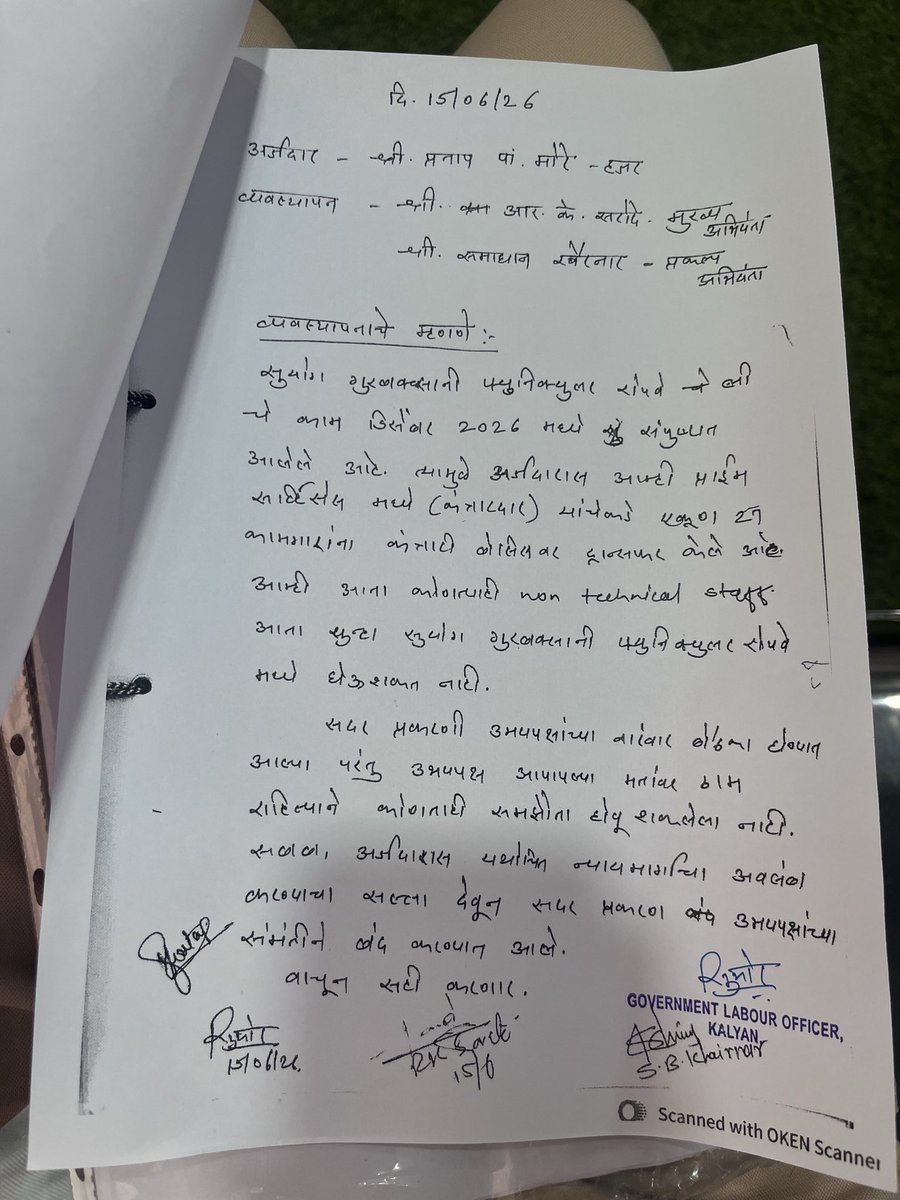 दि. 15/06/26
अर्जदार - श्री. प्रताप पां. मोरे - हजर
व्यवस्थापन - श्री. आर. के. सरोदे. मुख्य अभियंता
श्री. समाधान खैरनार - प्रकल्प अभियंता
व्यवस्थापनाचे म्हणणे :-
सुयोग गुरबक्सानी फ्युनिक्युलर रोपवे ली
चे काम डिसेंबर 2026 मध्ये संपुष्टात
आलेले आहे. त्यामुळे अर्जदारास आम्ही प्राईम
सर्व्हिसेस मध्ये (कंत्राटदार) यांचेकडे एकूण 27
कामगारांना कंत्राटी बेसिसवर ट्रान्सफर केले आहे.
आम्ही आता कोणत्याही non technical staff
आता सुयोग गुरबक्सानी फ्युनिक्युलर रोपवे
मध्ये घेऊ शकत नाही.
सदर प्रकरणी उभयपक्षांच्या वारंवार बैठका घेण्यात
आल्या परंतु उभयपक्ष आपापल्या मतांवर ठाम
राहिल्याने कोणताही समझौता होवू शकलेला नाही.
सबब, अर्जदारास यथोचित न्यायमार्गाचा अवलंब
करण्याचा सल्ला देवून सदर प्रकरण उभयपक्षांच्या
संमतीने बंद करण्यात आले.
वाचून सही करणार.
GOVERNMENT LABOUR OFFICER,
KALYAN
15/06/26.
15/6
S.B. Khairnar
Scanned with OKEN Scanner